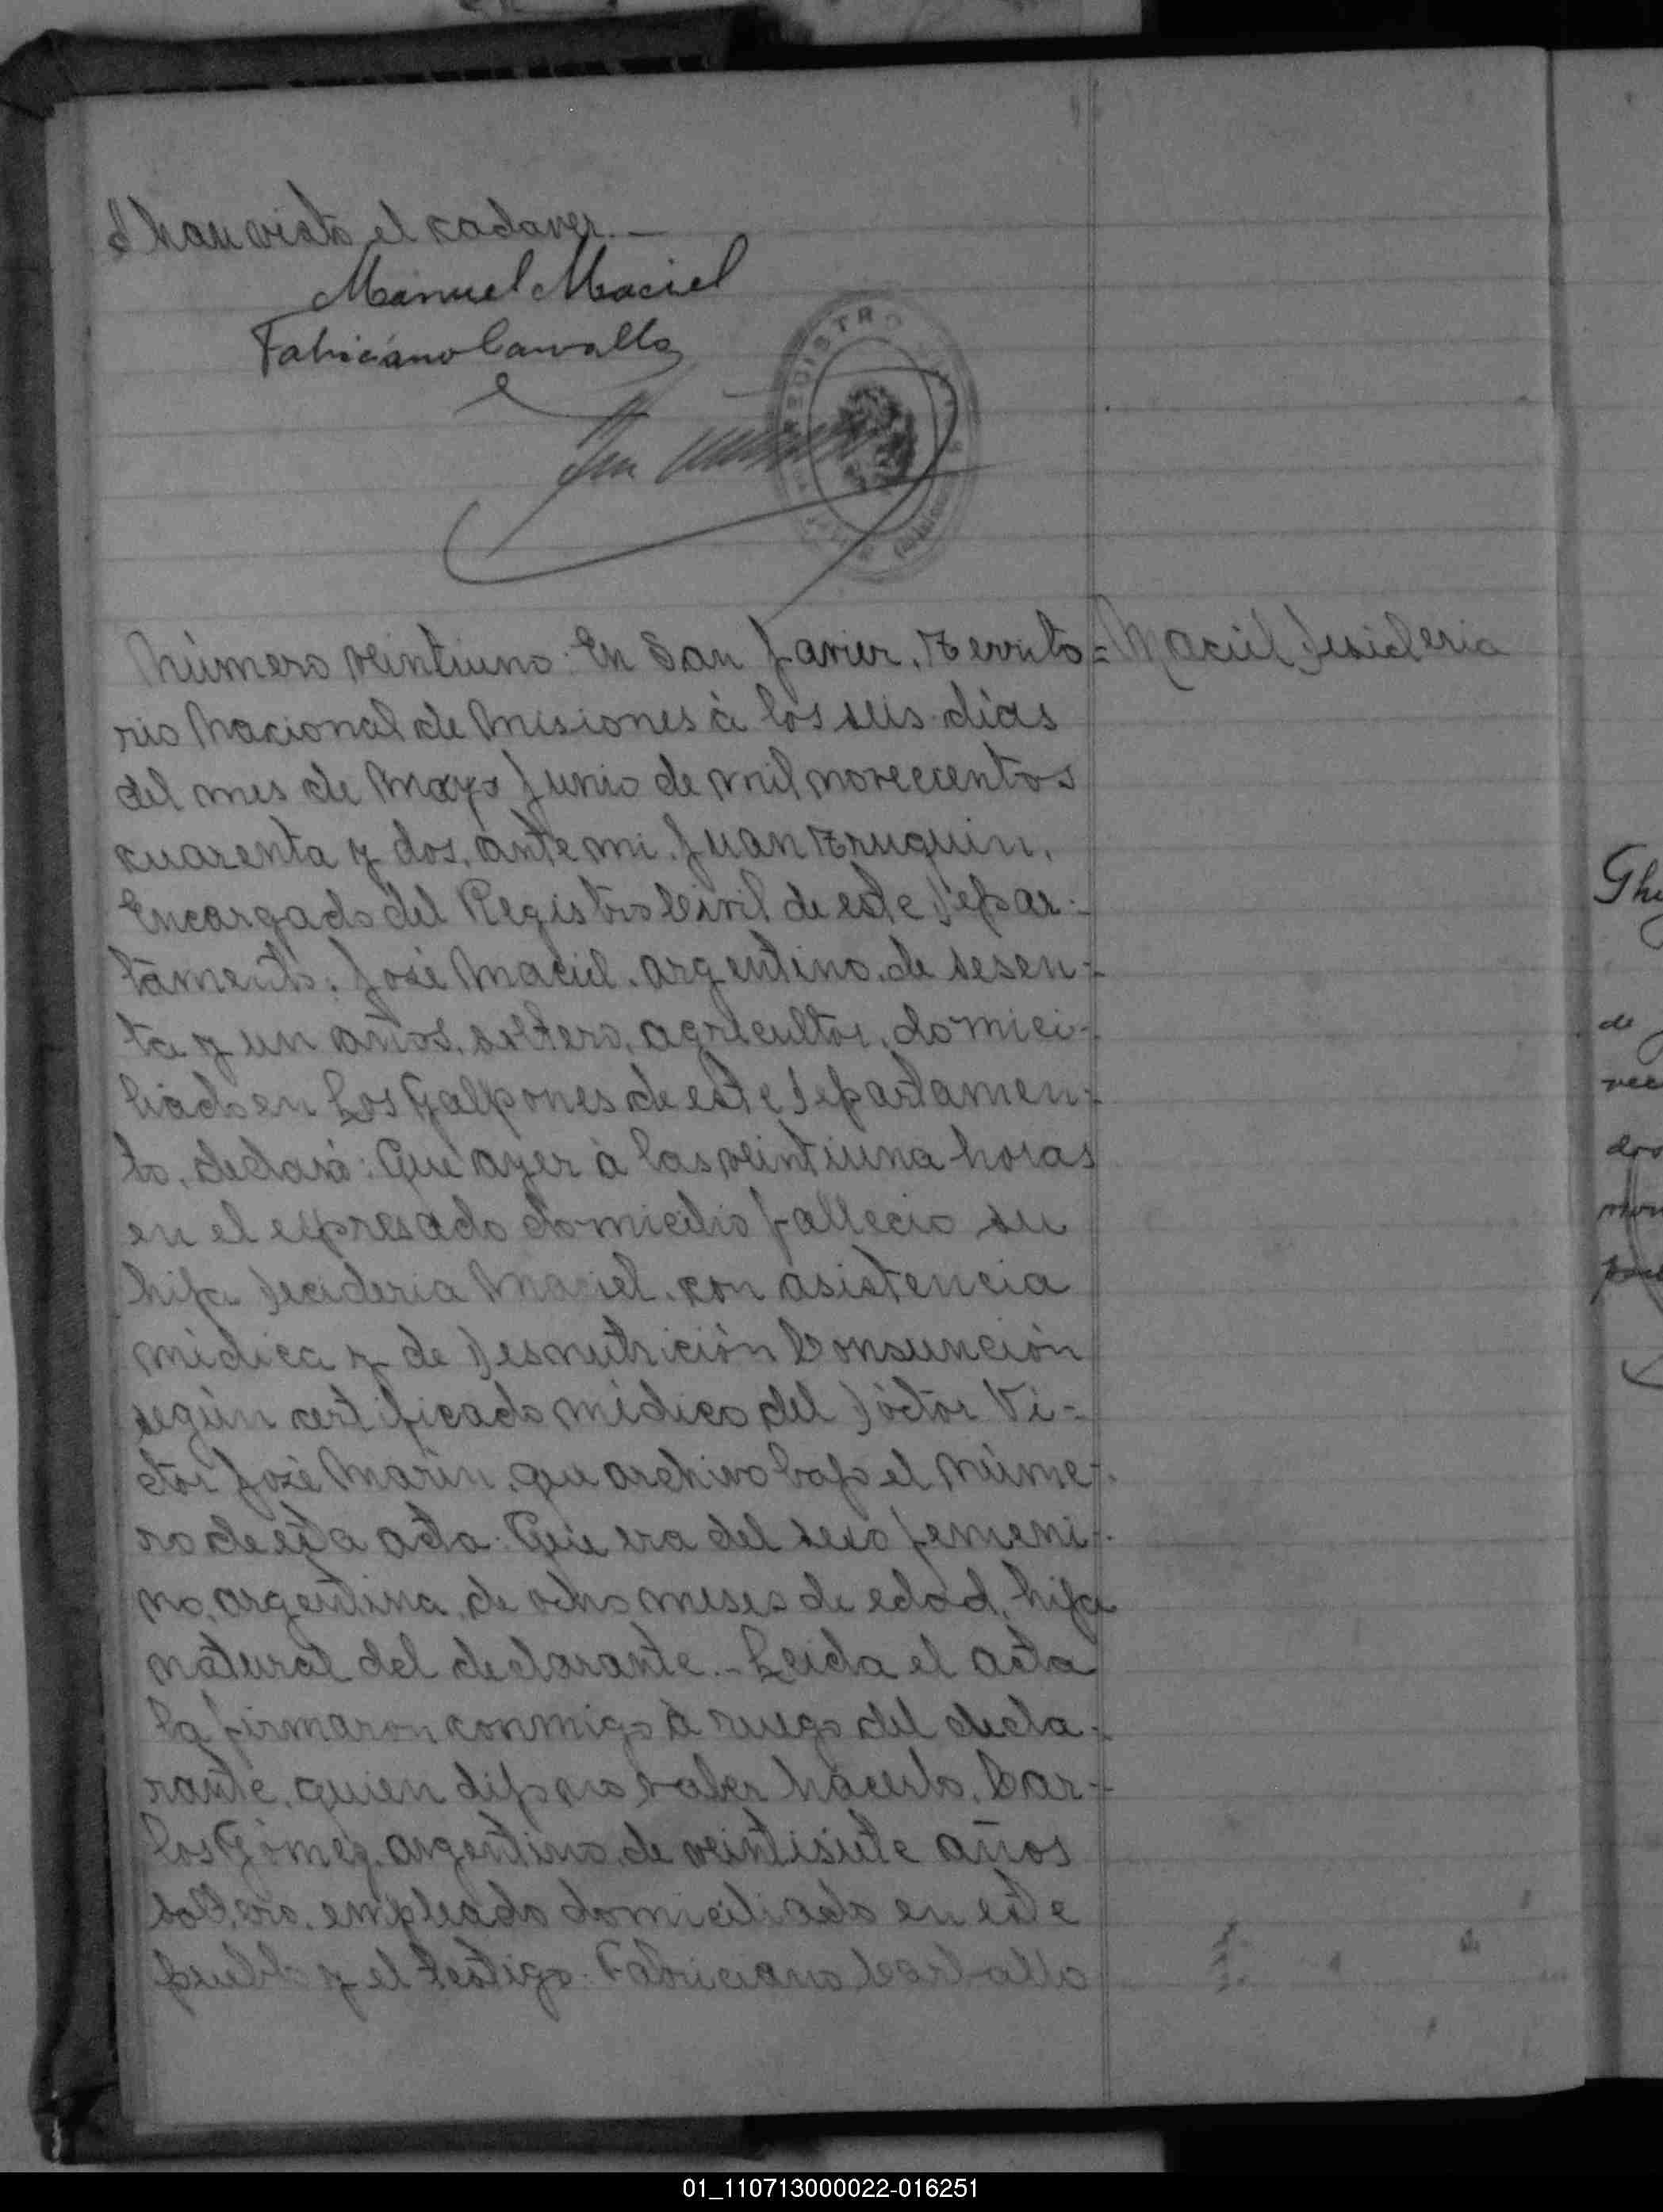 han visto el cadaver.—
Manuel Maciel
Fabriciano Carvallo
REGISTRO
Número veintiuno: En San Javier, Territo= Maciel Desideria
rio Nacional de Misiones à los seis dias
del mes de Mayo Junio de mil novecientos
cuarenta y dos, ante mi Juan Truquin,
Encargado del Registro Civil de este Depar-
tamento: José Maciel, argentino, de sesen-
ta y un años, soltero, agricultor, domici-
liado en Los Galpones de este Departamen-
to, declaró: Que ayer à las veintiuna horas
en el expresado domicilio fallecio su
hija Decideria Maciel, con asistencia
médica y de Desnutrición Consunción
según certificado médico del Dóctor Ví-
ctor José Marin, que archivo bajo el núme-
ro de esta acta: Que era del sexo femeni-
no, argentina, de ocho meses de edad, hija
natural del declarante.- Leida el acta
la firmaron conmigo à ruego del decla-
rante, quien dijo no saber hacerlo, Car-
los Gómez, argentino, de veintisiete años
soltero, empleado domiciliado en este
pueblo y el testigo: Fabriciano Carballo
Gh
de
01_110713000022-016251